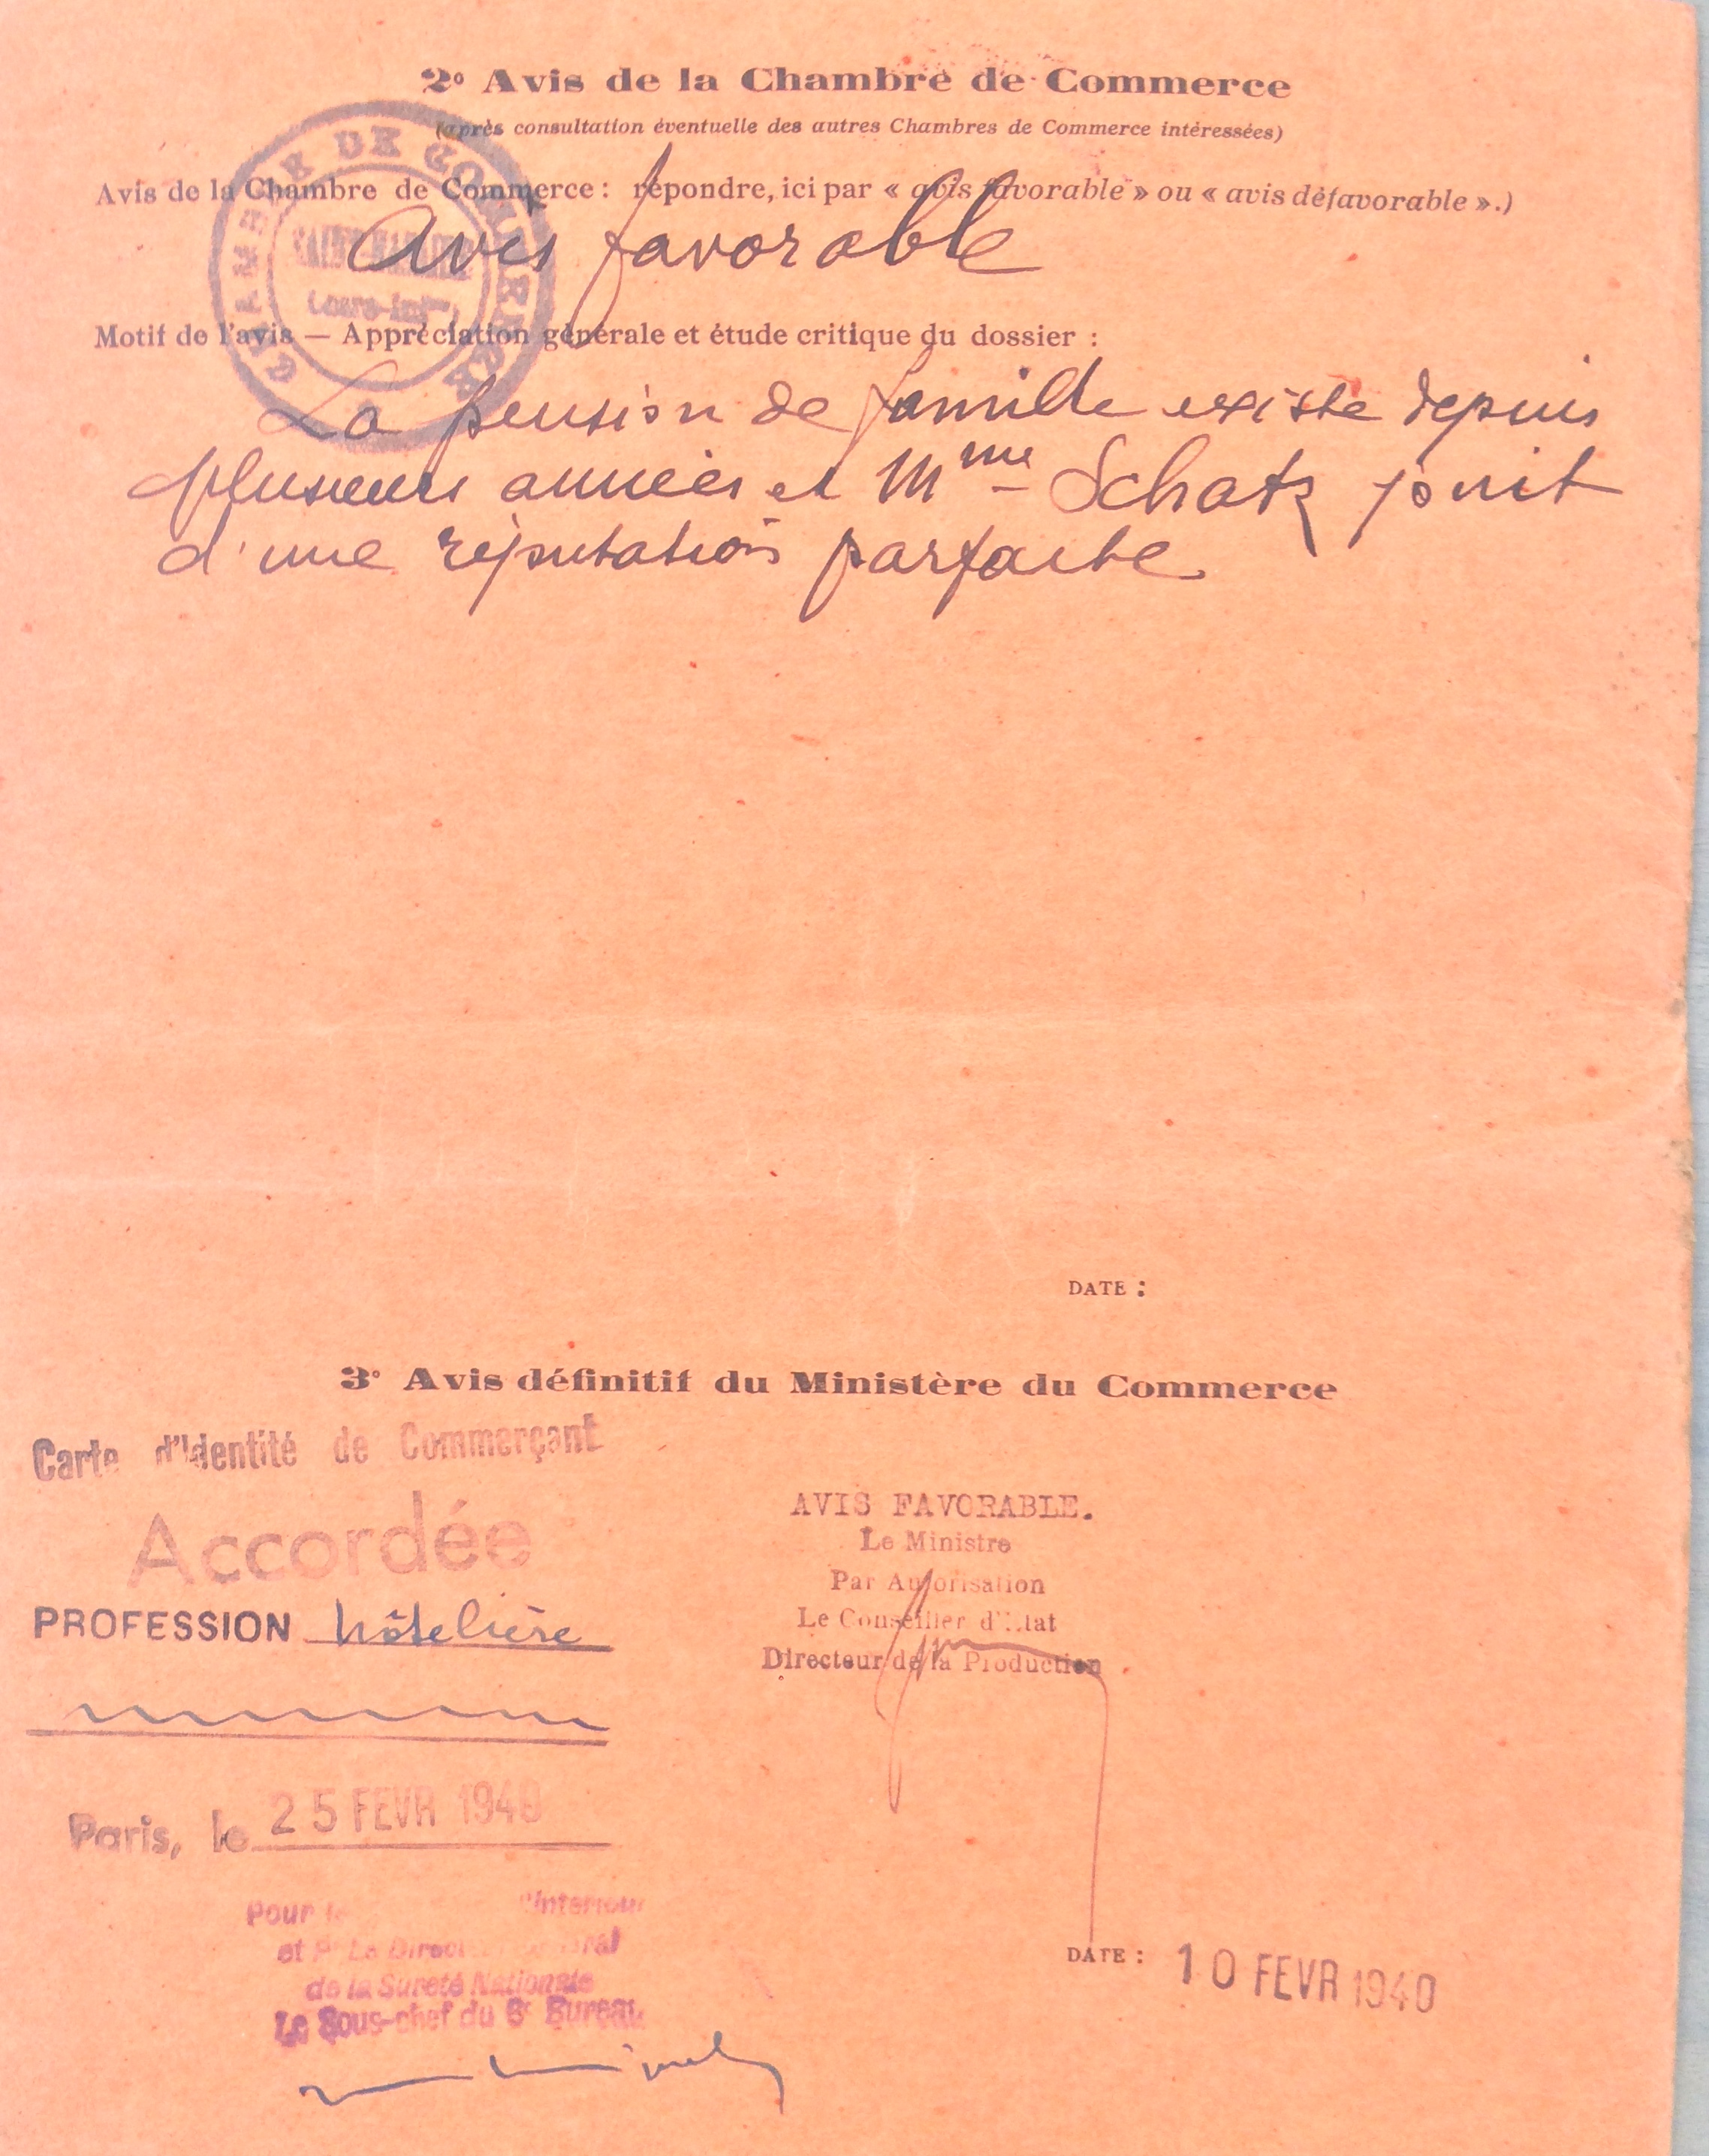 2º Avis de la Chambre de Commerce
(après consultation éventuelle des autres Chambres de Commerce intéressées)
Avis de la Chambre de Commerce : répondre, ici par « avis favorable » ou « avis défavorable ».)
Avis favorable
Motif de l'avis — Appréciation générale et étude critique du dossier :
La pension de famille existe depuis
plusieurs années et Mme Schatz jouit
d'une réputation parfaite
CHAMBRE DE COMMERCE
SAINT-NAZAIRE
(Loire-Infre)
DATE :
3º Avis définitif du Ministère du Commerce
Carte d'Identité de Commerçant
Accordée
PROFESSION hôtelière
Paris, le 25 FEVR 1940
Pour le l'Interieur
et Pr Le Directeur Général
de la Sureté Nationale
Le Sous-chef du 6e Bureau
AVIS FAVORABLE.
Le Ministre
Par Autorisation
Le Conseiller d'Etat
Directeur de la Production
DATE : 10 FEVR 1940